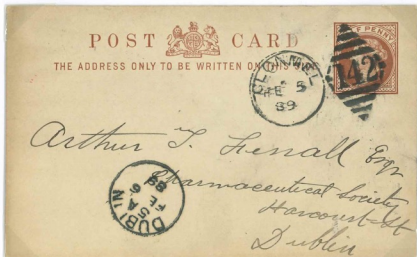 POST CARD
THE ADDRESS ONLY TO BE WRITTEN ON THIS
PENNY
CLONMEL
FE 5
89
142
Arthur T. Ferrall Esqr
Pharmaceutical Society
Harcourt St
Dublin
DUBLIN
A
FE 5
89